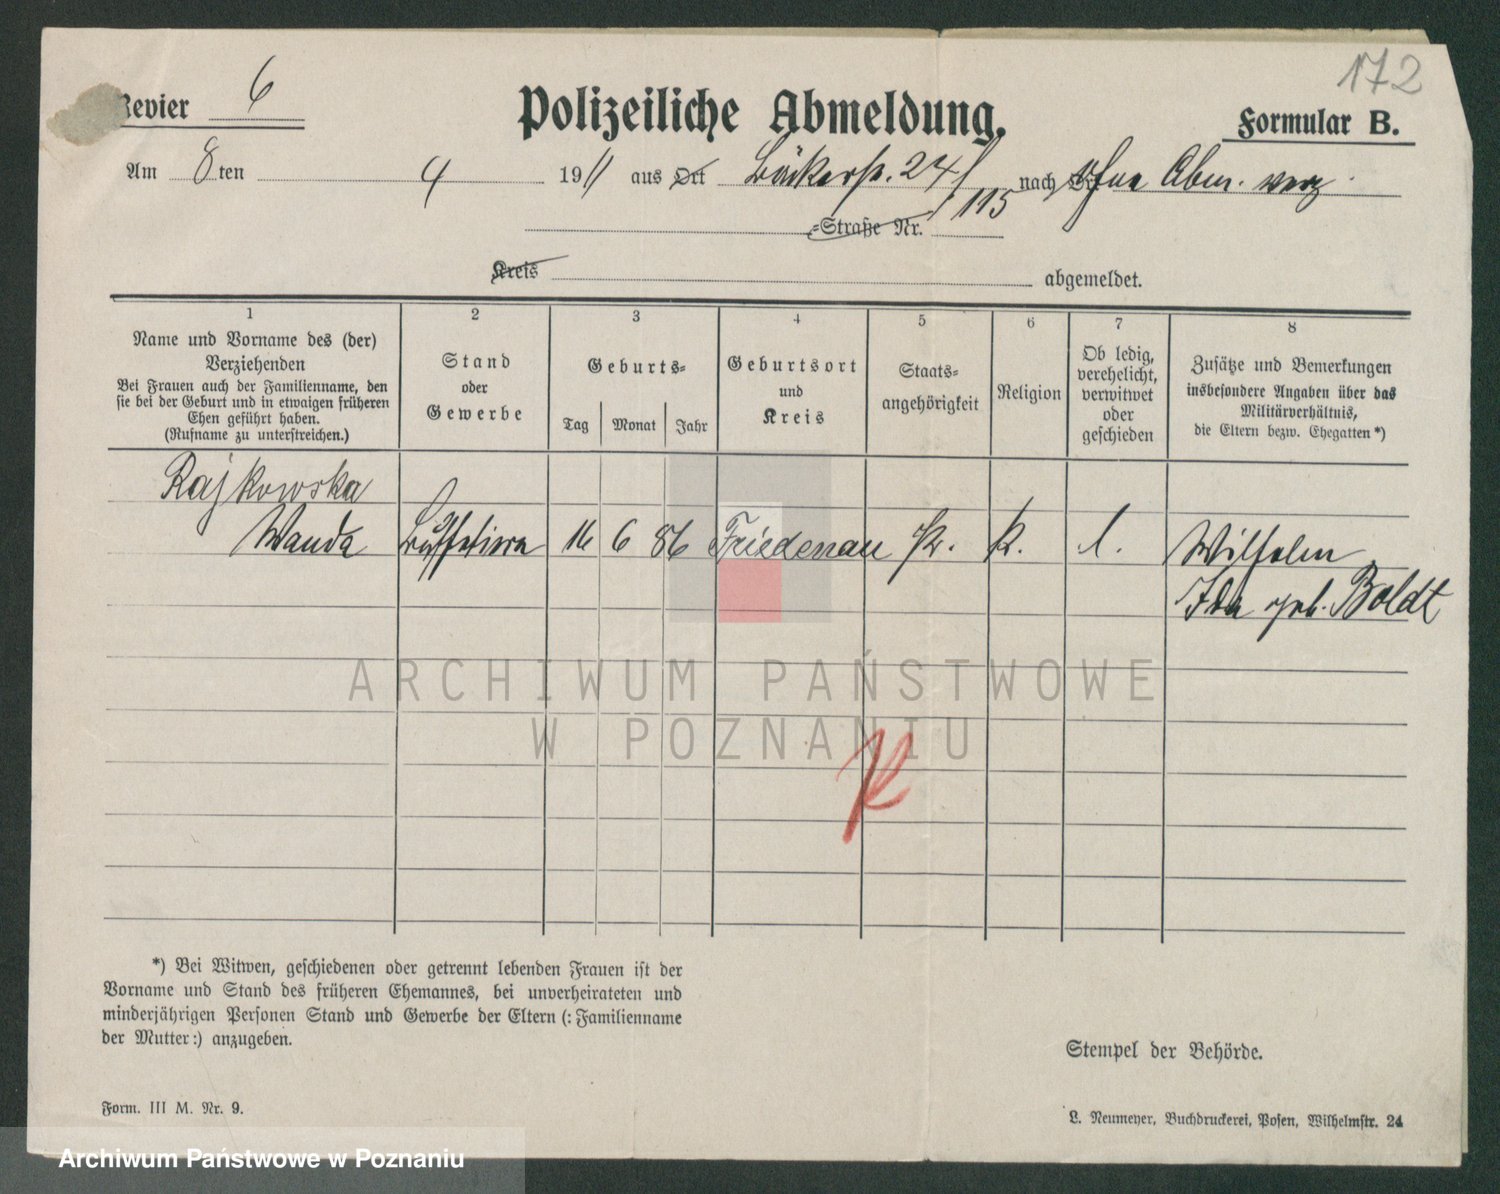 172
Revier 6
Polizeiliche Abmeldung.
Formular B.
Am 8 ten 4 1911 aus Ort Bäckerstr. 24 nach Ort ohne Abm. verz.
=Straße Nr. 115
Kreis abgemeldet.
1 2 3 4 5 6 7 8
Name und Vorname des (der)
Verziehenden
Bei Frauen auch der Familienname, den
sie bei der Geburt und in etwaigen früheren
Ehen geführt haben.
(Rufname zu unterstreichen.)
Stand
oder
Gewerbe
Geburts=
Tag Monat Jahr
Geburtsort
und
Kreis
Staats=
angehörigkeit
Religion
Ob ledig,
verehelicht,
verwitwet
oder
geschieden
Zusätze und Bemerkungen
insbesondere Angaben über das
Militärverhältnis,
die Eltern bezw. Ehegatten *)
Rajkowska
Wanda Buffetiere 16 6 86 Friedenau Pr. k. l. Wilhelm
Ida geb. Boldt
ARCHIWUM PAŃSTWOWE
W POZNANIU
*) Bei Witwen, geschiedenen oder getrennt lebenden Frauen ist der
Vorname und Stand des früheren Ehemannes, bei unverheirateten und
minderjährigen Personen Stand und Gewerbe der Eltern (: Familienname
der Mutter :) anzugeben.
Stempel der Behörde.
Form. III M. Nr. 9.
L. Neumeyer, Buchdruckerei, Posen, Wilhelmstr. 24
Archiwum Państwowe w Poznaniu